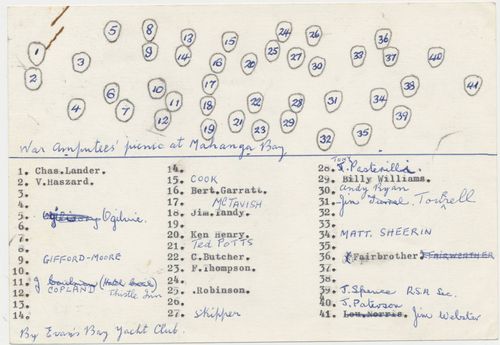 5 8 13 15 24 26 36
1 3 9 14 16 20 25 27 30 33 37 40
2 6 10 11 17 41
4 7 12 18 22 28 31 34 38 39
19 21 23 29 32 35
War Amputees' picnic at Mahanga Bay
1. Chas.Lander.
2. V.Haszard.
3.
4.
5. Ogilvie.
6.
7.
8.
9. GIFFORD-MOORE
10.
11. J (Hotel
12. COPLAND Thistle Inn
13.
14.
By Evans Bay Yacht Club.
14.
15. COOK
16. Bert.Garratt.
17. McTAVISH
18. Jim.Tandy.
19.
20. Ken Henry.
21. Ted POTTS
22. C.Butcher.
23. F.Thompson.
24.
25. .Robinson.
26.
27. Skipper
28. TONY Pasterilli
29. Billy Williams.
30. Andy Ryan
31. Jim Torrell
32.
33.
34. MATT. SHEERIN
35.
36. Fairbrother FAIRWEATHER
37.
38.
39. J. Spence R.S.A Sec.
40. J. Paterson
41. Lou.Norris. Jim Webster